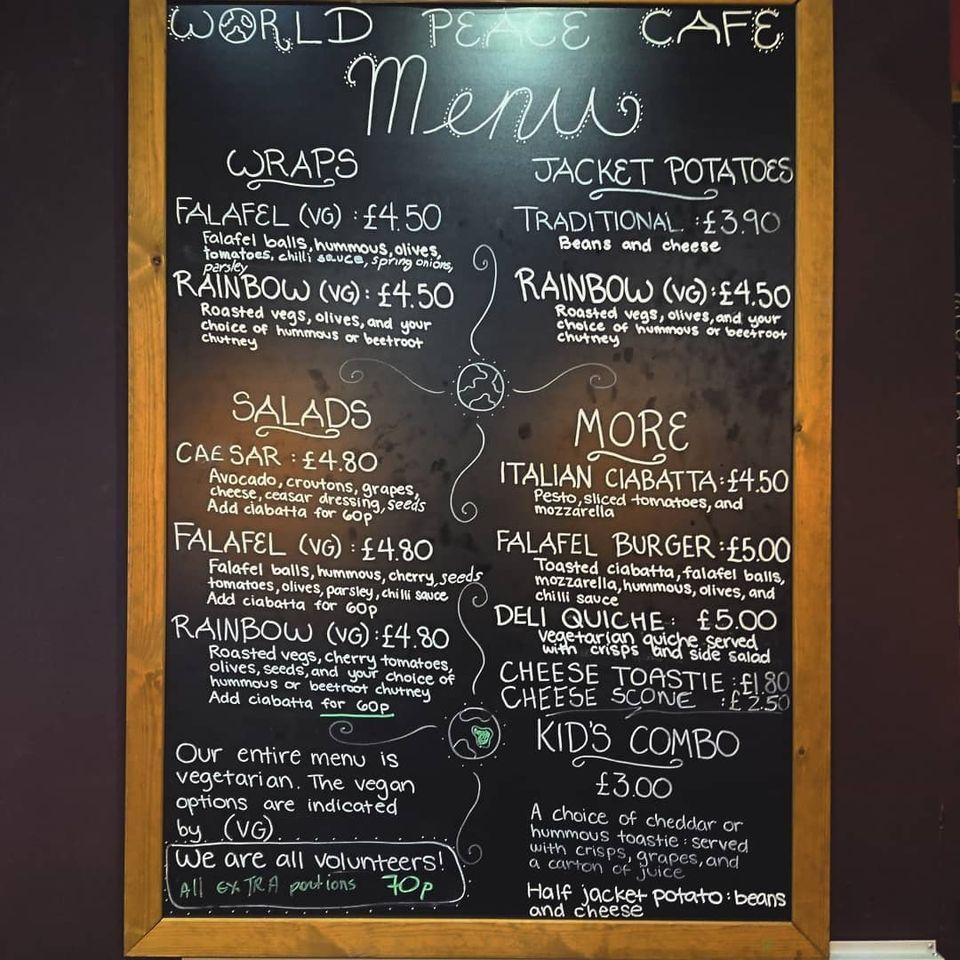 WORLD PEACE CAFE
Menu
WRAPS
FALAFEL (VG) : £4.50
Falafel balls, hummous, olives,
tomatoes, chilli sauce, spring onions,
parsley
RAINBOW (VG) : £4.50
Roasted vegs, olives, and your
choice of hummous or beetroot
chutney
SALADS
CAESAR : £4.80
Avocado, croutons, grapes,
cheese, ceasar dressing, seeds
Add ciabatta for 60p
FALAFEL (VG) : £4.80
Falafel balls, hummous, cherry, seeds
tomatoes, olives, parsley, chilli sauce
Add ciabatta for 60p
RAINBOW (VG) : £4.80
Roasted vegs, cherry tomatoes,
olives, seeds, and your choice of
hummous or beetroot chutney
Add ciabatta for 60p
Our entire menu is
vegetarian. The vegan
options are indicated
by (VG)
We are all volunteers!
All EXTRA portions 70p
JACKET POTATOES
TRADITIONAL : £3.90
Beans and cheese
RAINBOW (VG) : £4.50
Roasted vegs, olives, and your
choice of hummous or beetroot
chutney
MORE
ITALIAN CIABATTA : £4.50
Pesto, sliced tomatoes, and
mozzarella
FALAFEL BURGER : £5.00
Toasted ciabatta, falafel balls,
mozzarella, hummous, olives, and
chilli sauce
DELI QUICHE : £5.00
vegetarian quiche served
with crisps and side salad
CHEESE TOASTIE : £1.80
CHEESE SCONE : £2.50
KID'S COMBO
£3.00
A choice of cheddar or
hummous toastie : served
with crisps, grapes, and
a carton of juice
Half jacket potato : beans
and cheese